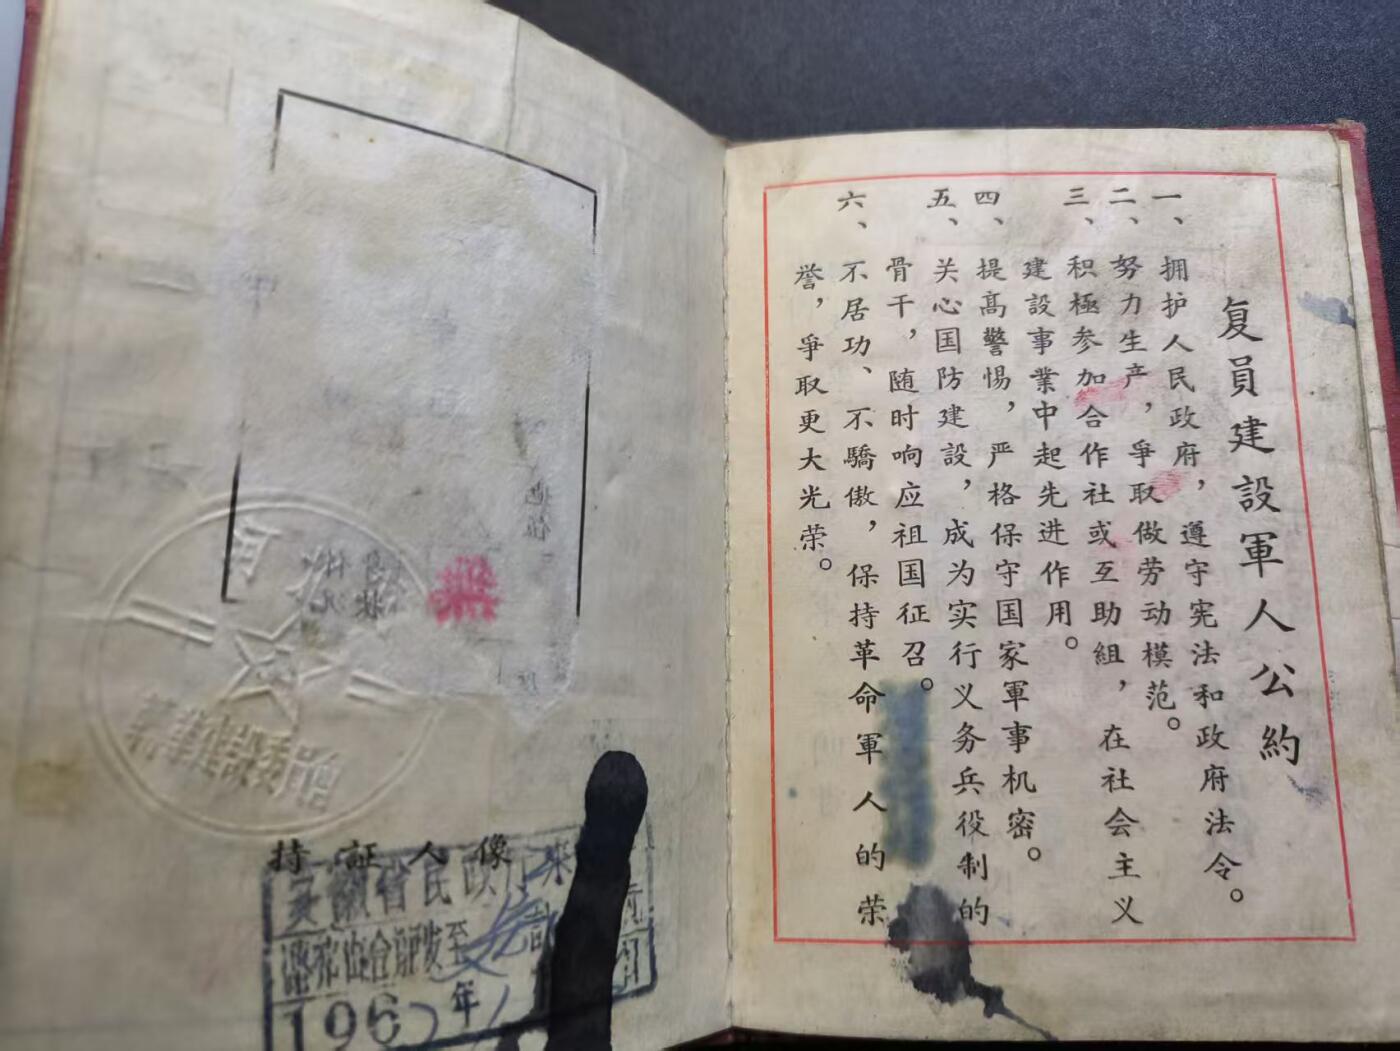 复員建設軍人公約
一、拥护人民政府，遵守宪法和政府法令。
二、努力生产，爭取做劳动模范。
三、积極参加合作社或互助組，在社会主义
建設事業中起先进作用。
四、提高警惕，严格保守国家軍事机密。
五、关心国防建設，成为实行义务兵役制的
骨干，随时响应祖国征召。
六、不居功、不驕傲，保持革命軍人的荣
誉，爭取更大光荣。
持証人像
省民政厅
年